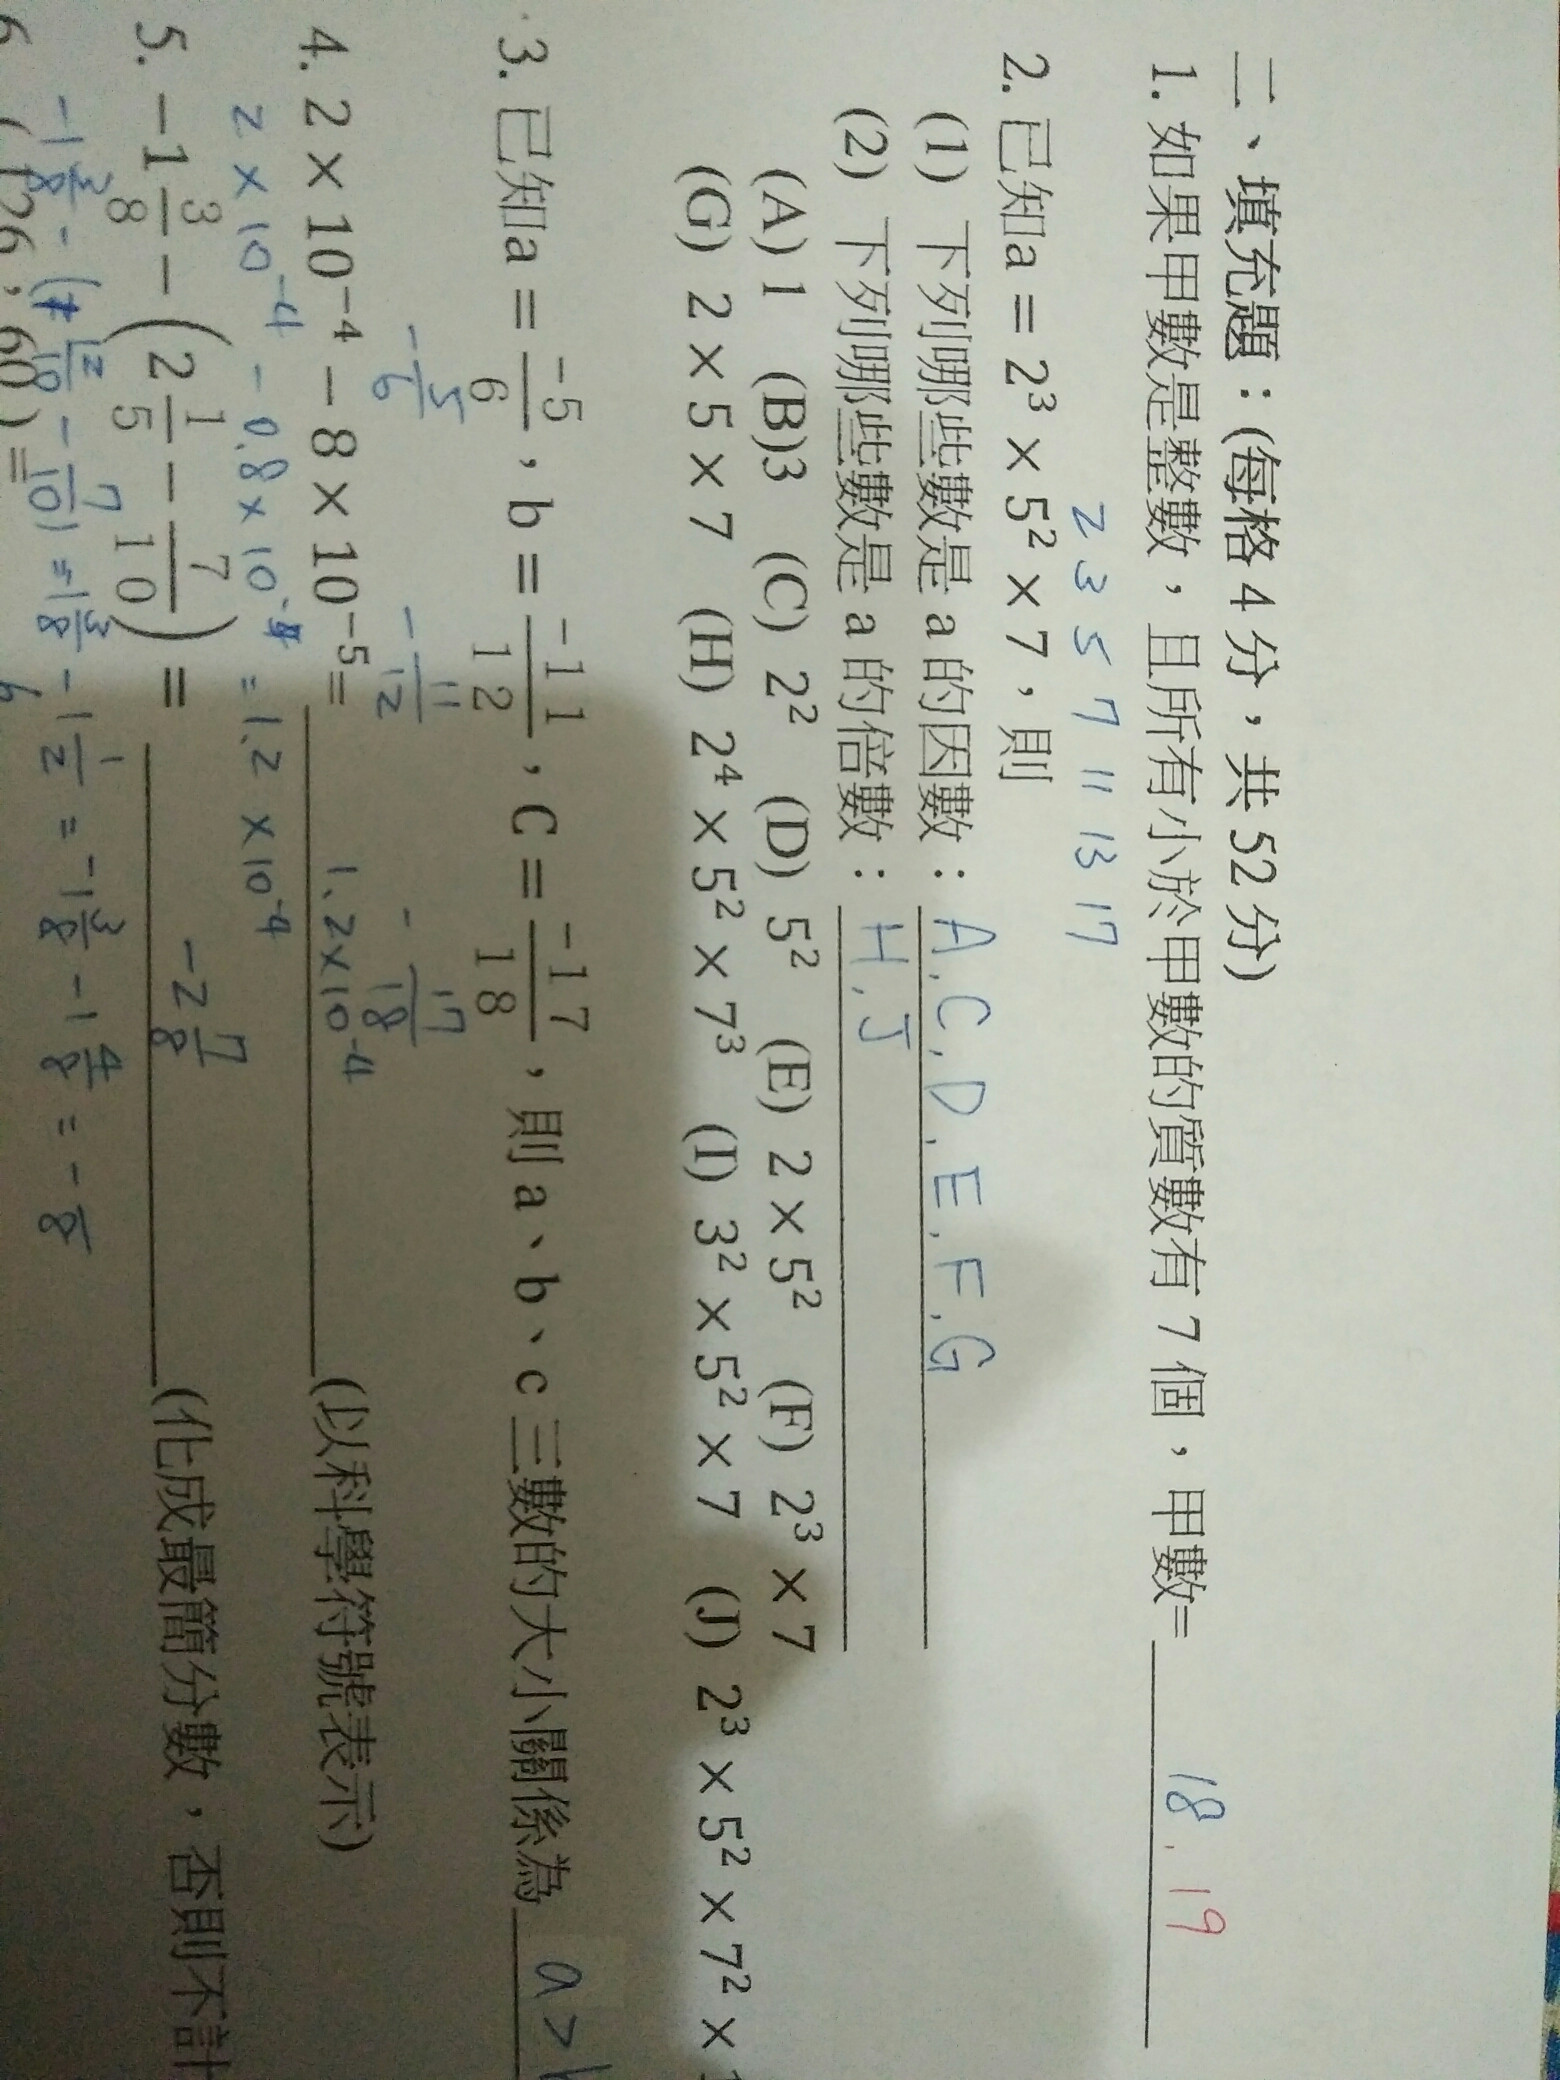 二、填充題：(每格 4 分，共 52 分)
1. 如果甲數是整數，且所有小於甲數的質數有 7 個，甲數= 18. 19
2 3 5 7 11 13 17
2. 已知a = 2³ × 5² × 7，則
(1) 下列哪些數是 a 的因數：A. C. D. E. F. G
(2) 下列哪些數是 a 的倍數：H. J
(A) 1 (B)3 (C) 2² (D) 5² (E) 2 × 5² (F) 2³ × 7
(G) 2 × 5 × 7 (H) 2⁴ × 5² × 7³ (I) 3² × 5² × 7 (J) 2³ × 5² × 7² ×
3. 已知a = -5/6，b = -11/12，C = -17/18，則 a、b、c 三數的大小關係為 a >
-5/6 -11/12 -17/18
4. 2 × 10⁻⁴ − 8 × 10⁻⁵= 1.2×10⁻⁴ (以科學符號表示)
2 × 10⁻⁴ - 0.8 × 10⁻⁴ = 1.2 × 10⁻⁴
5. −1 3/8 − (2 1/5 − 7/10) = -2 7/8 (化成最簡分數，否則不計
-1 3/8 - ( 12/10 - 7/10) = -1 3/8 - 1 1/2 = -1 3/8 - 1 4/8 = - /8
6. (126，60) =